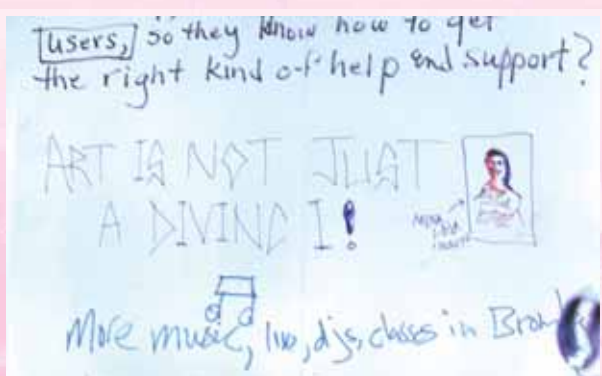 users, so they know how to get
the right kind of help and support?
ART IS NOT JUST
A DIVINC I!
More music, live, djs, classes in